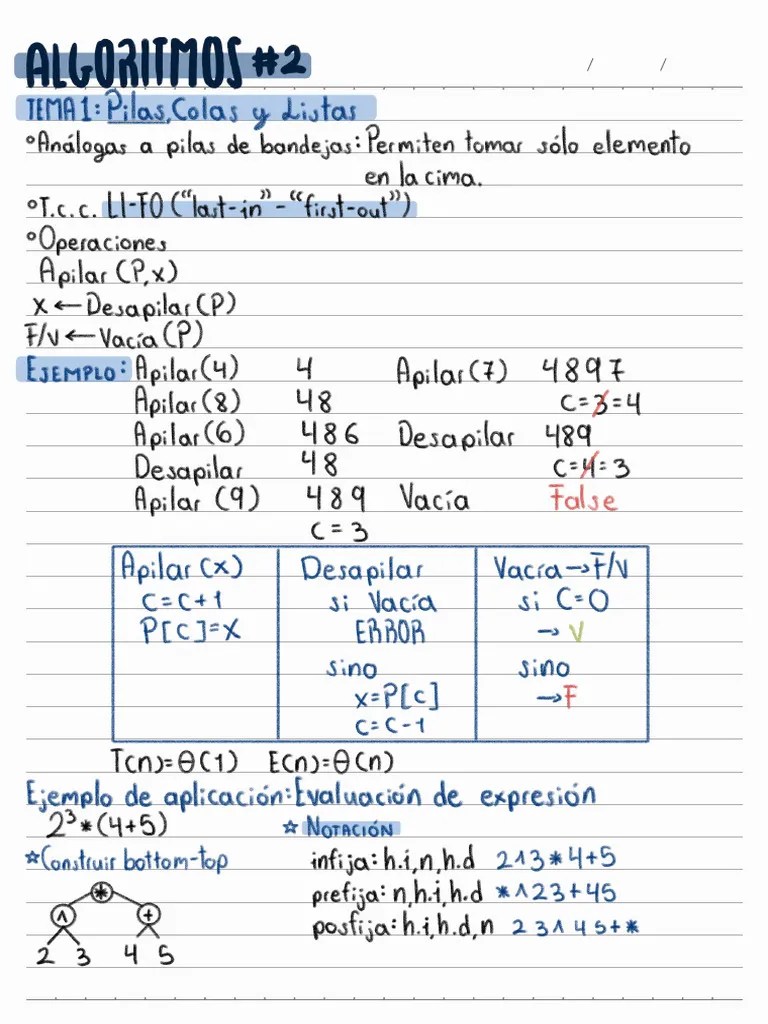 ALGORITMOS #2
/ /
TEMA 1: Pilas, Colas y Listas
°Análogas a pilas de bandejas: Permiten tomar sólo elemento
en la cima.
°T.c.c. LI-FO ("last-in" - "first-out")
°Operaciones
Apilar (P,x)
x ← Desapilar (P)
F/v ← Vacía (P)
EJEMPLO: Apilar (4) 4 Apilar (7) 4897
Apilar (8) 48 C = 3 = 4
Apilar (6) 486 Desapilar 489
Desapilar 48 C = 4 = 3
Apilar (9) 489 Vacía False
C = 3
Apilar (x) Desapilar Vacía → F/V
C = C + 1 si Vacía si C = 0
P[C] = X ERROR → V
sino sino
x = P[C] → F
C = C - 1
T(n) = Θ(1) E(n) = Θ(n)
Ejemplo de aplicación: Evaluación de expresión
2³ * (4+5) ☆ NOTACIÓN
☆ Construir bottom-top infija: h.i, n, h.d 2 ∧ 3 * 4 + 5
* prefija: n, h.i, h.d * ∧ 2 3 + 4 5
∧ + posfija: h.i, h.d, n 2 3 ∧ 4 5 + *
2 3 4 5